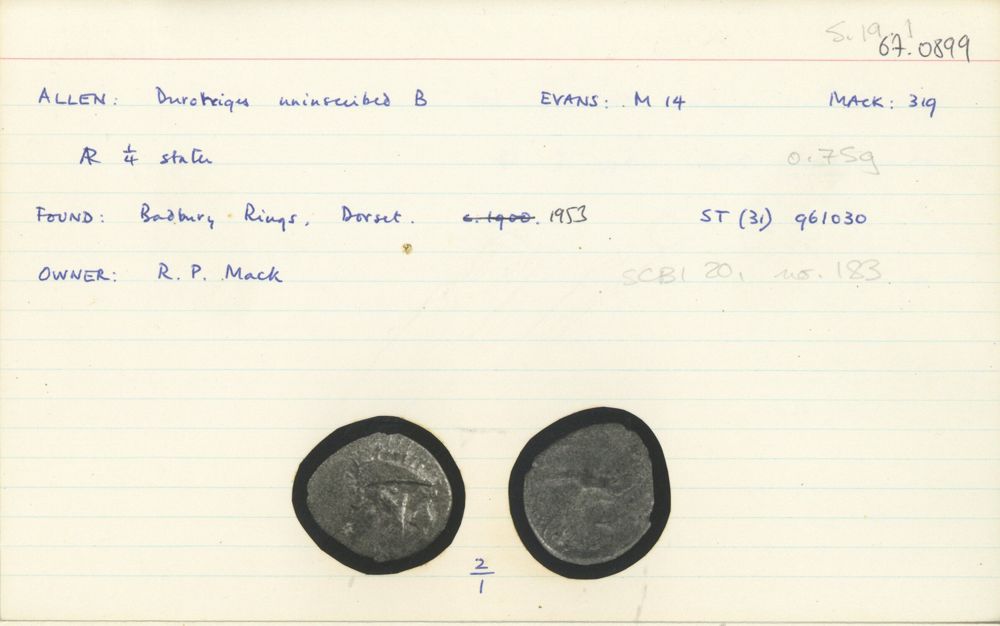 S. 19 . 1
67.0899
ALLEN: Durotriges uninscribed B EVANS: M 14 MACK: 319
AR 1/4 stater 0.75g
FOUND: Badbury Rings, Dorset. c. 1900. 1953 ST (31) 961030
OWNER: R. P. Mack SCBI 20, no. 183
2/1